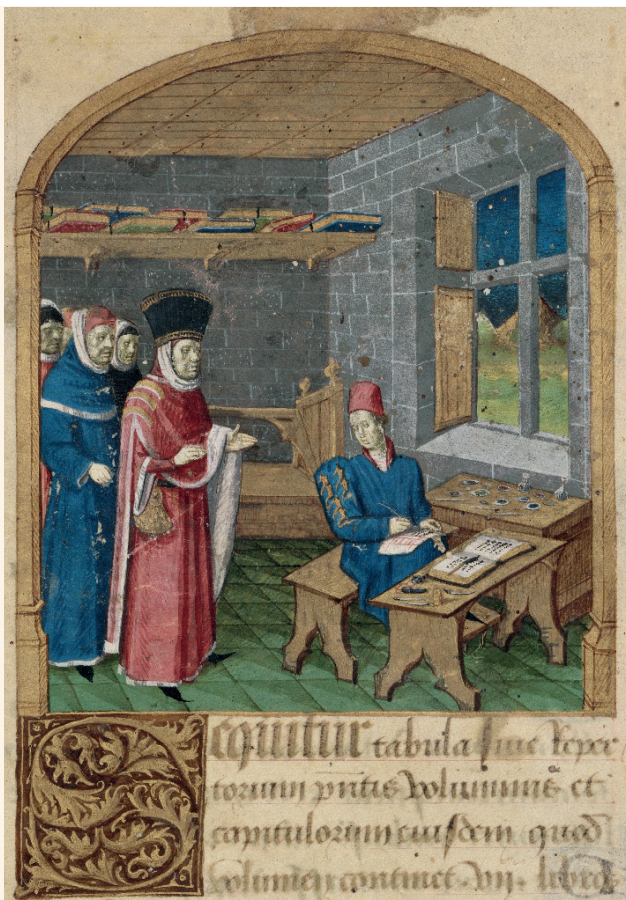 Sequitur tabula sive reper
torium pntis voluminis et
capitulorum eiusdem quod
volumen continet .vii. libros